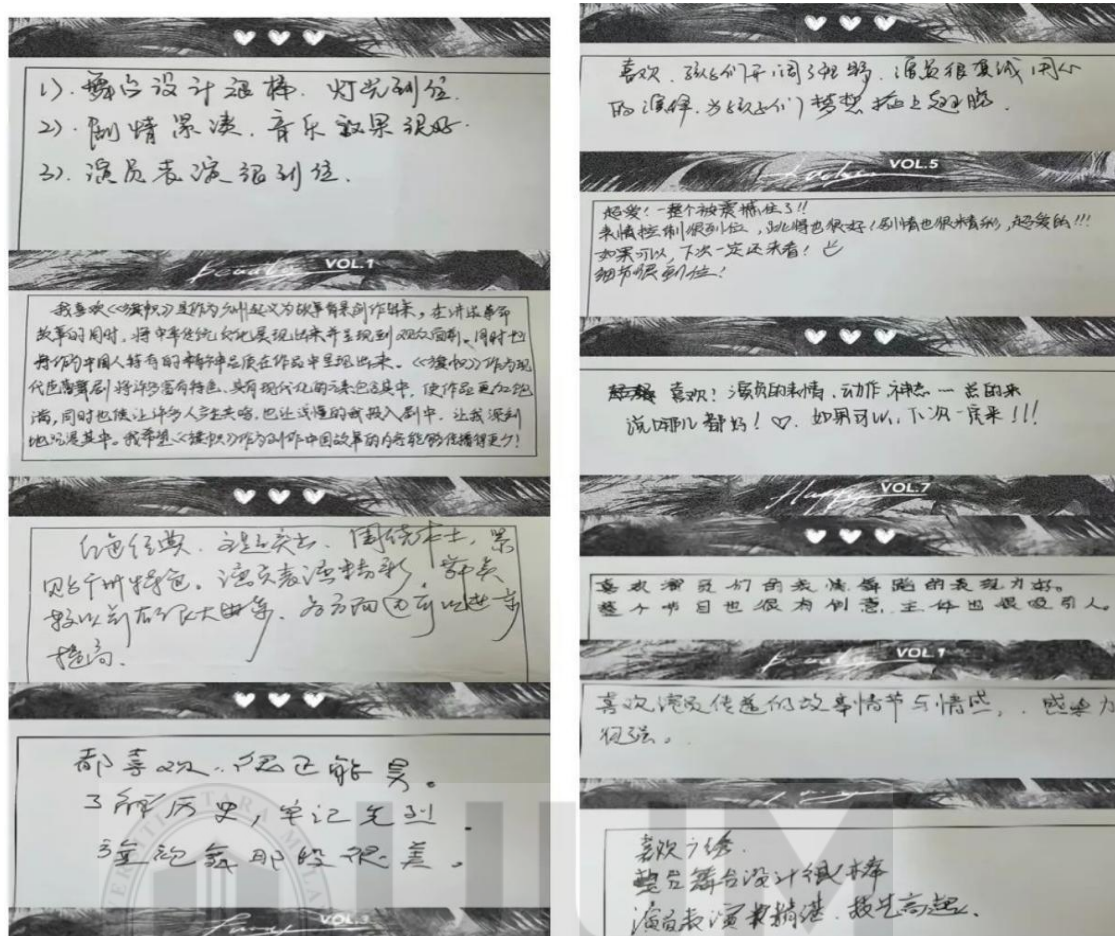 1). 舞台设计很棒. 灯光到位.
2). 剧情紧凑. 音乐效果很好.
3). 演员表演很到位.
beauty VOL.1
我喜欢《旗帜》是作为广州起义为故事背景创作的作品, 在讲述革命
故事的同时, 将中华传统文化展现出来并呈现到观众面前。同时也
将作为中国人特有的精神品质在作品中呈现出来。《旗帜》作为现
代芭蕾舞剧将许多富有特色、具有现代化的元素包含其中, 使作品更加饱
满, 同时也使让许多人 也让 的我投入剧中, 让我深刻
地沉浸其中。我希望《旗帜》作为创作中国故事的内容能够传播得更广!
红色经典. 主题突出. 围绕本土, 紧
贴广州特色。演员表演精彩.
较以前有了很大进步. 各方面还可以进一步
提高.
都喜欢.. 很正能量。
了解历史, 牢记先烈.
旗袍舞那段很美。
Funny VOL.3
喜欢. 孩子们开阔了视野. 演员很真诚用心
的演绎. 为孩子们梦想插上翅膀.
Lucky VOL.5
超爱! 一整个被震撼住了!!
表情控制很到位, 也很好! 剧情也很精彩, 超爱的!!!
如果可以, 下次一定还来看!
细节很到位!
喜欢! 演员的表情、动作、神态 一 总的来
说哪儿都好! ♡. 如果可以, 下次一定来!!!
Happy VOL.7
喜欢演员们的表情舞蹈的表现力好。
整个节目也很有创意, 主体也很吸引人。
beauty VOL.1
喜欢演员传递的故事情节与情感,. 感染力
很强。
喜欢
整台舞台设计很棒
演员表演精湛. 技艺高超.
UUM